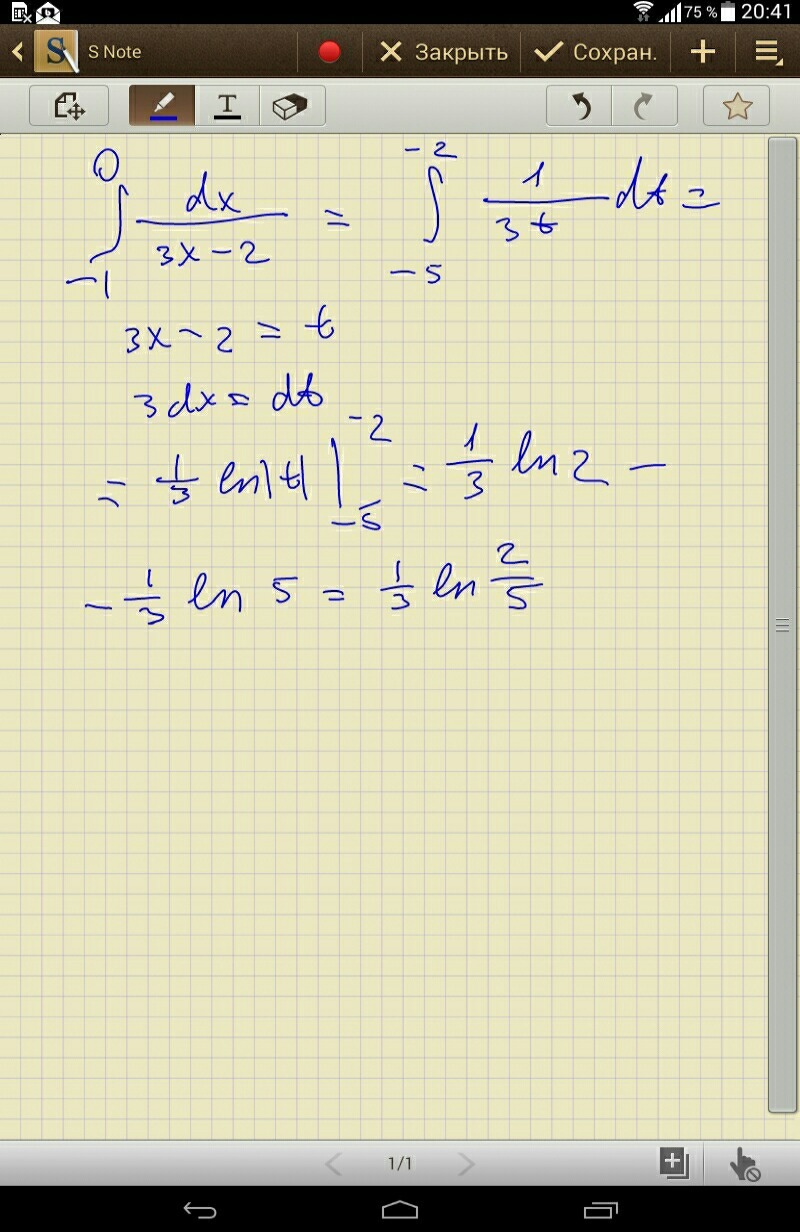 75 % 20:41
S Note Закрыть Сохран.
T
∫_{-1}^{0} dx/(3x-2) = ∫_{-5}^{-2} 1/(3t) dt =
3x - 2 = t
3dx = dt
= 1/3 ln|t| |_{-5}^{-2} = 1/3 ln 2 -
- 1/3 ln 5 = 1/3 ln 2/5
1/1